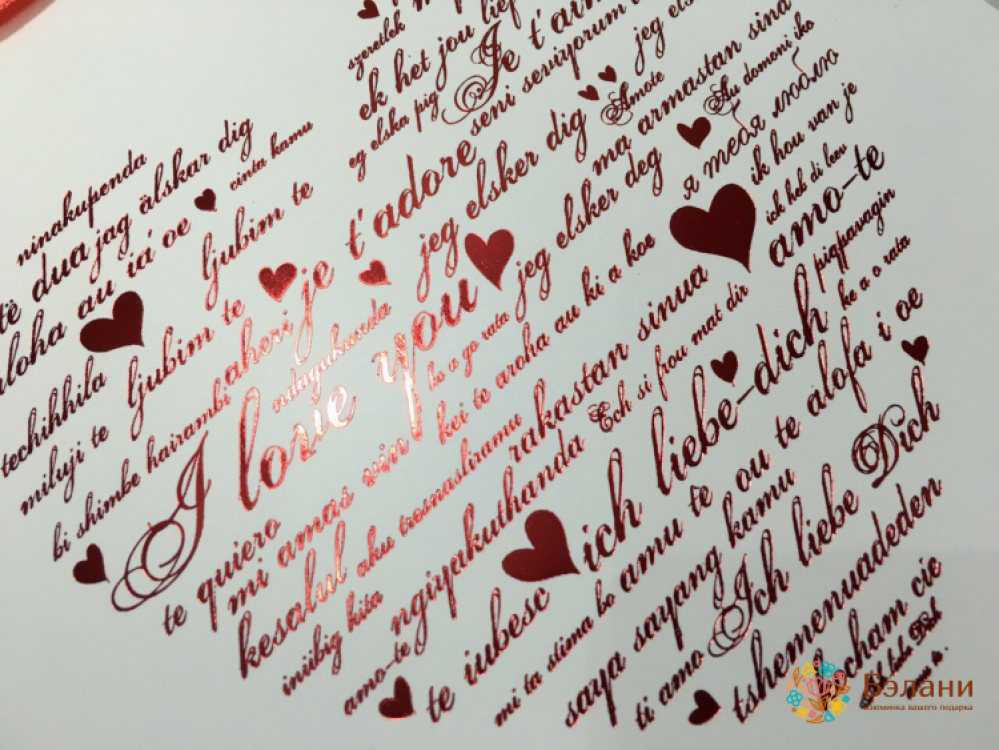 szeretlek
ek het jou lief
eg elska pig
Je t'aim
seni seviyorum
jeg els
Amote
ma armastan sina
Au domoni iko
minakupenda
të dua jag älskar dig
cinta kamu
aloha au ia' oe
ljubim te
je t'adore
jeg elsker dig
jeg elsker deg
я тебя люблю
ik hou van je
ich hab di lieu
techihhila
ljubim te
aheri
miluji te
bi shimbe hairambi
I love you
ho a go rata
kei te aroha au ki a koe
rakastan sinua
amo-te
te quiero
mi amas vin
Ech si frou mat dir
pigpavagin
kesalul
aku tresnasliramu
ich liebe-dich
ke a o rata
iniibig kita
ngiyakuthanda
amo-te
te iubesc
amu te ou te alofa i oe
mi ta stima bo
saya sayang kamu
Ich liebe Dich
ti amo
tshemenuadeden
kocham cie
Бэлани
изюминка вашего подарка